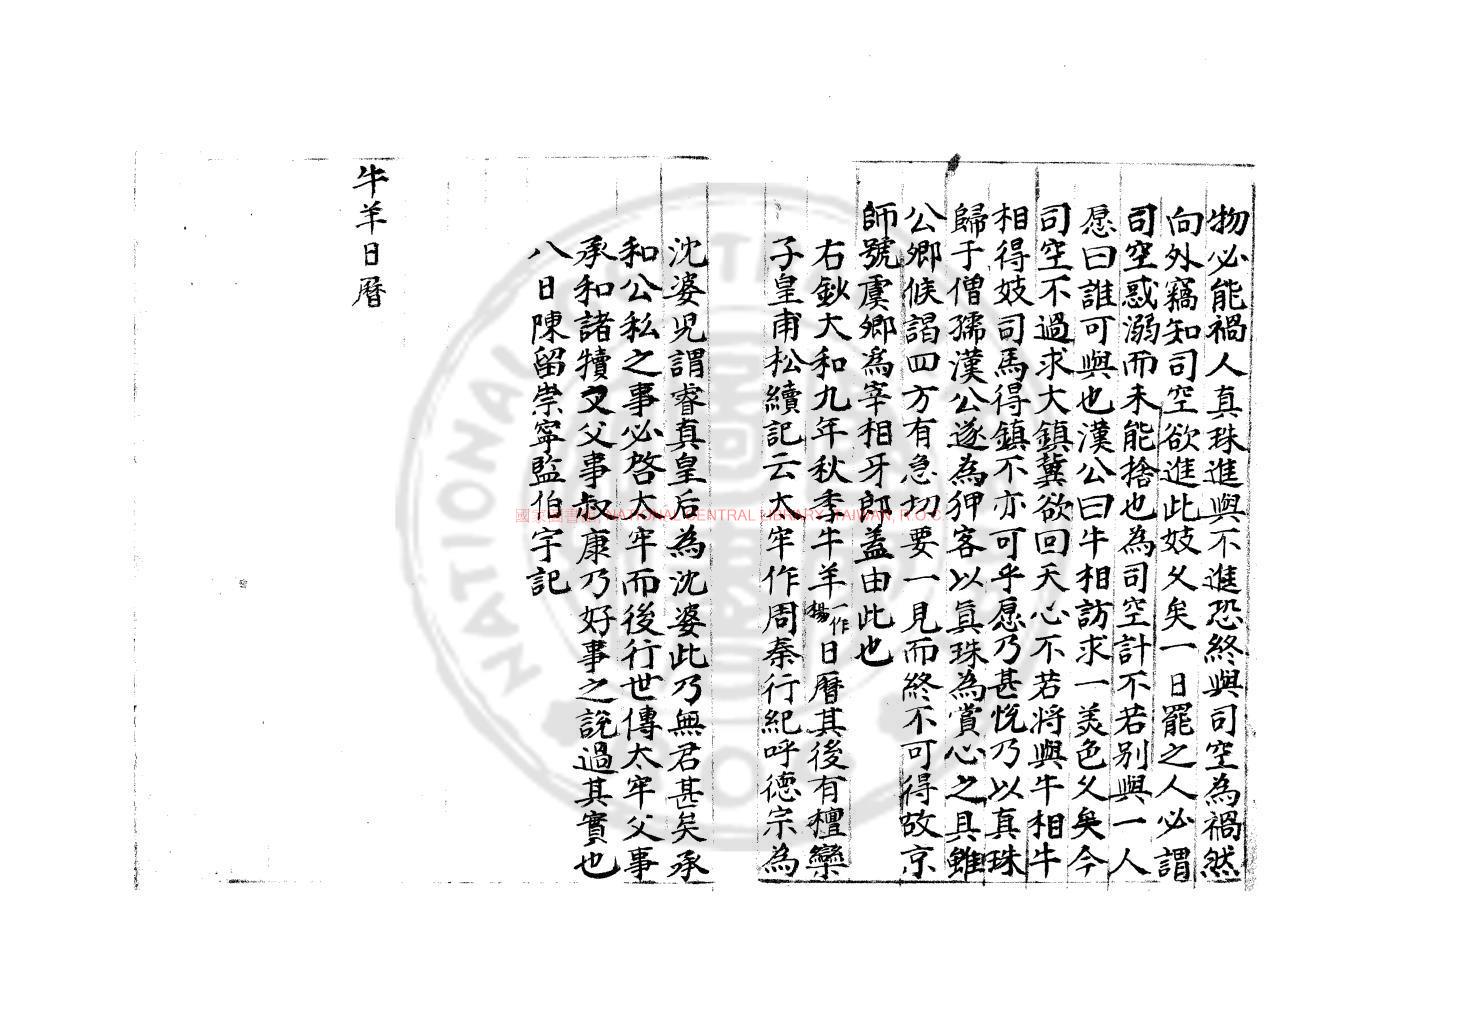 物必能禍人真珠進與不進恐終與司空為禍然
向外竊知司空欲進此妓久矣一日罷之人必謂
司空惑溺而未能捨也為司空計不若别與一人
愿曰誰可與也漢公曰牛相訪求一美色久矣今
司空不過求大鎮冀欲回天心不若将與牛相牛
相得妓司馬得鎮不亦可乎愿乃甚悅乃以真珠
歸于僧孺漢公遂為狎客以眞珠為賞心之具雖
公卿候謁四方有急切要一見而終不可得故京
師號虞卿爲宰相牙郎蓋由此也
右鈔大和九年秋季牛羊一作楊日曆其後有檀欒
子皇甫松續記云太牢作周秦行紀呼德宗為
沈婆兒謂睿真皇后為沈婆此乃無君甚矣承
和公私之事必啓太牢而後行世傳太牢父事
承和諸犢又父事叔康乃好事之說過其實也
八日陳留崇寧監伯宇記
牛羊日曆
國家圖書館, NATIONAL CENTRAL LIBRARY, TAIWAN, R.O.C.